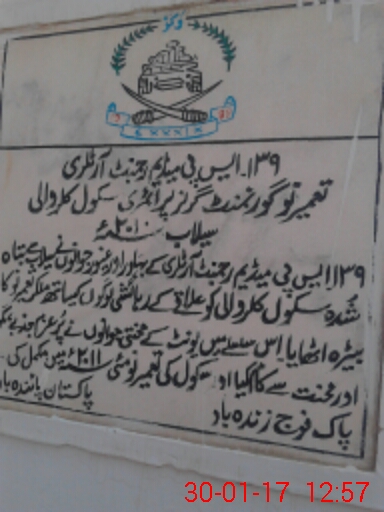 ۱۳۹۔ایس پی میڈیم رجمنٹ آرٹلری
تعمیر نو گورنمنٹ گرلز پرائمری سکول کلروالی
سیلاب ۲۰۱۰ء
۱۳۹ ایس پی میڈیم رجمنٹ آرٹلری کے بہادر اور غیور جوانوں نے سیلاب سے تباہ
شدہ سکول کلروالی کو علاقے کے رہائشی لوگوں کیساتھ ملکر تعمیر نو کا
بیڑہ اٹھایا اس سلسلے میں یونٹ کے محنتی جوانوں نے پُرعزم جذبے
اور محنت سے کام کیا اور سکول کی تعمیر نو مئی ۲۰۱۱ء میں مکمل کی۔
پاکستان پائندہ باد
پاک فوج زندہ باد
30-01-17 12:57